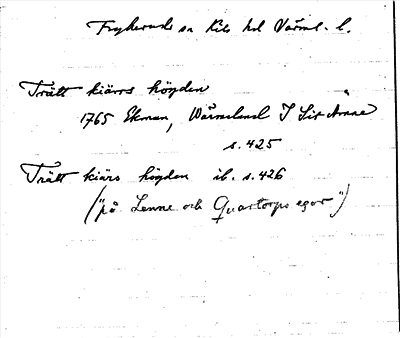 Frykeruds sn Kils hd Värml. l.
Trätt kiärrs högden
1765 Ekman, Wärmeland I
s. 425
Trätt kiärs högden ib. s. 426
("på Lenne och Quartorps egor")